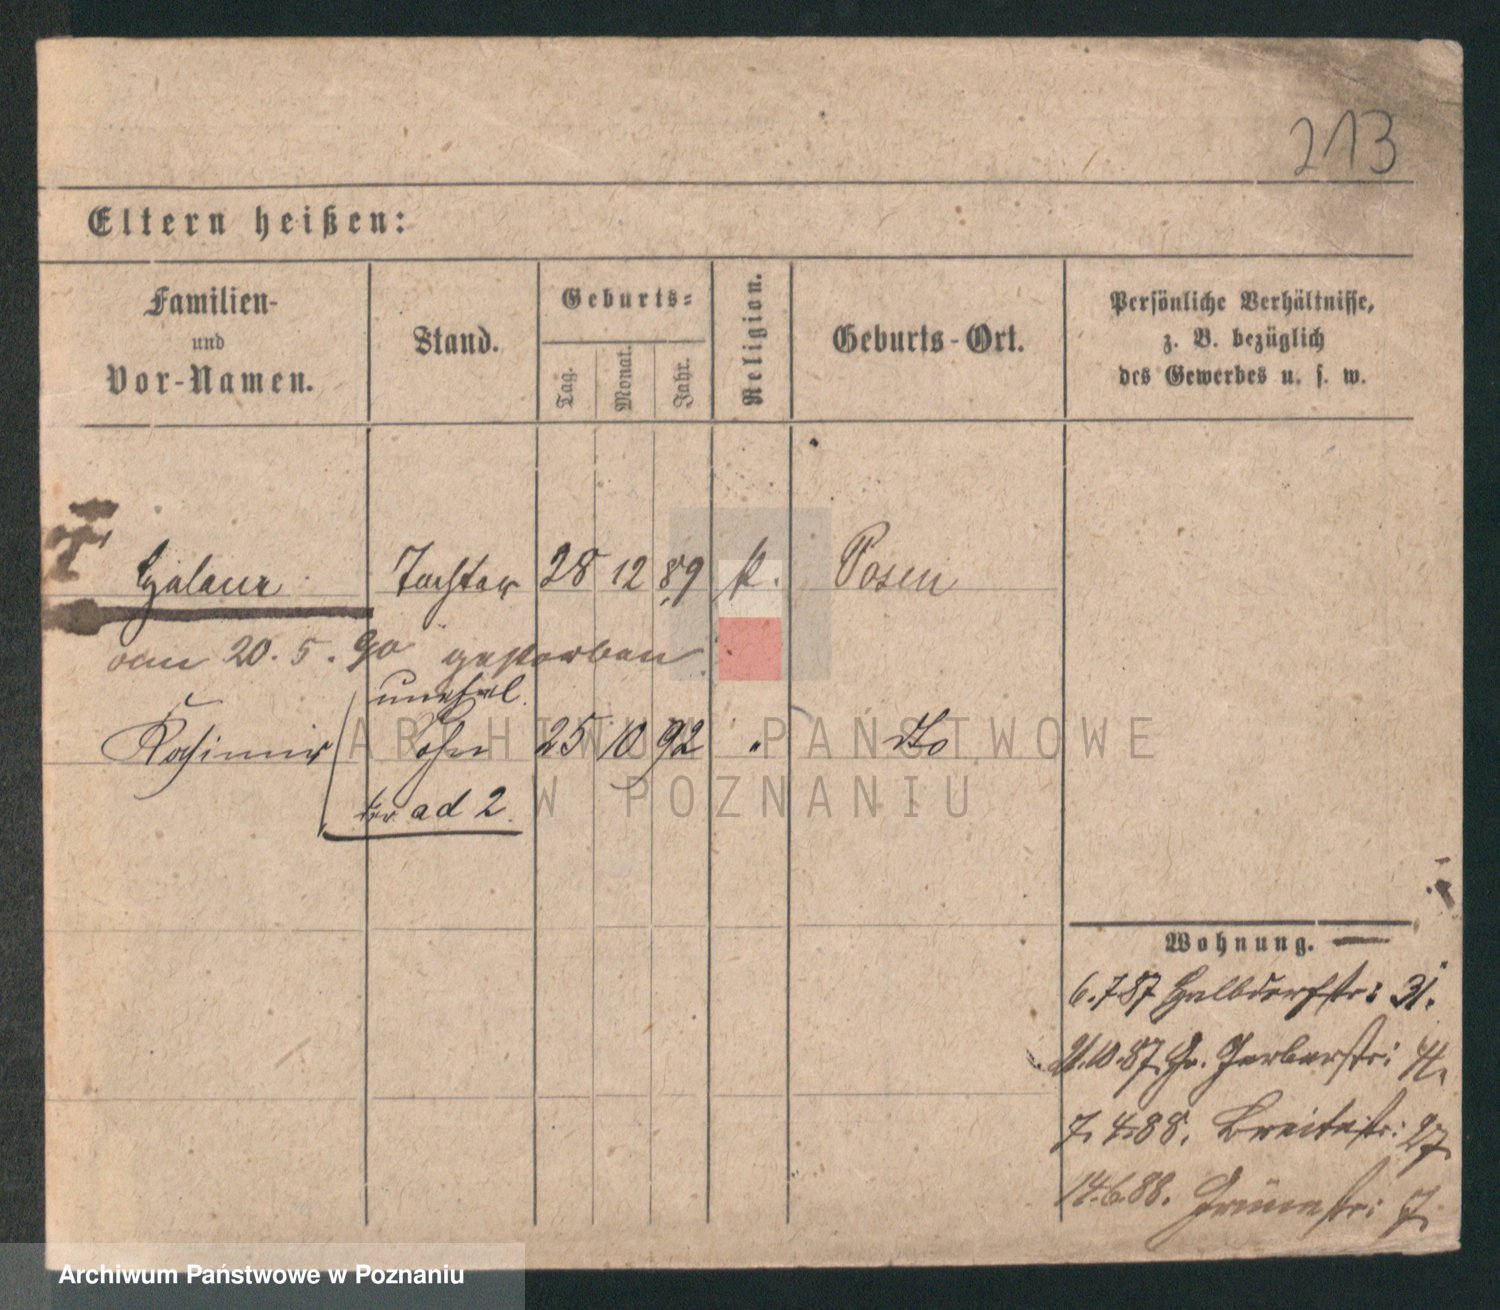 213
Eltern heißen:
Familien-
und
Vor-Namen.
Stand.
Geburts-
Tag.
Monat.
Jahr.
Religion.
Geburts-Ort.
Persönliche Verhältnisse,
z. B. bezüglich
des Gewerbes u. s. w.
Tochter 28 12 89 k. Posen
am 20. 5. 90 gestorben
unehel.
Kasimir Sohn 25 10 92 " dto
der ad 2.
ARCHIWUM PAŃSTWOWE
W POZNANIU
Wohnung.
6.7.87 Halbdorfstr: 31.
21.10.87. Gr. Gerberstr:
7. 4. 88. Breitestr: 27
14.6.88. Grünestr: 7.
Archiwum Państwowe w Poznaniu